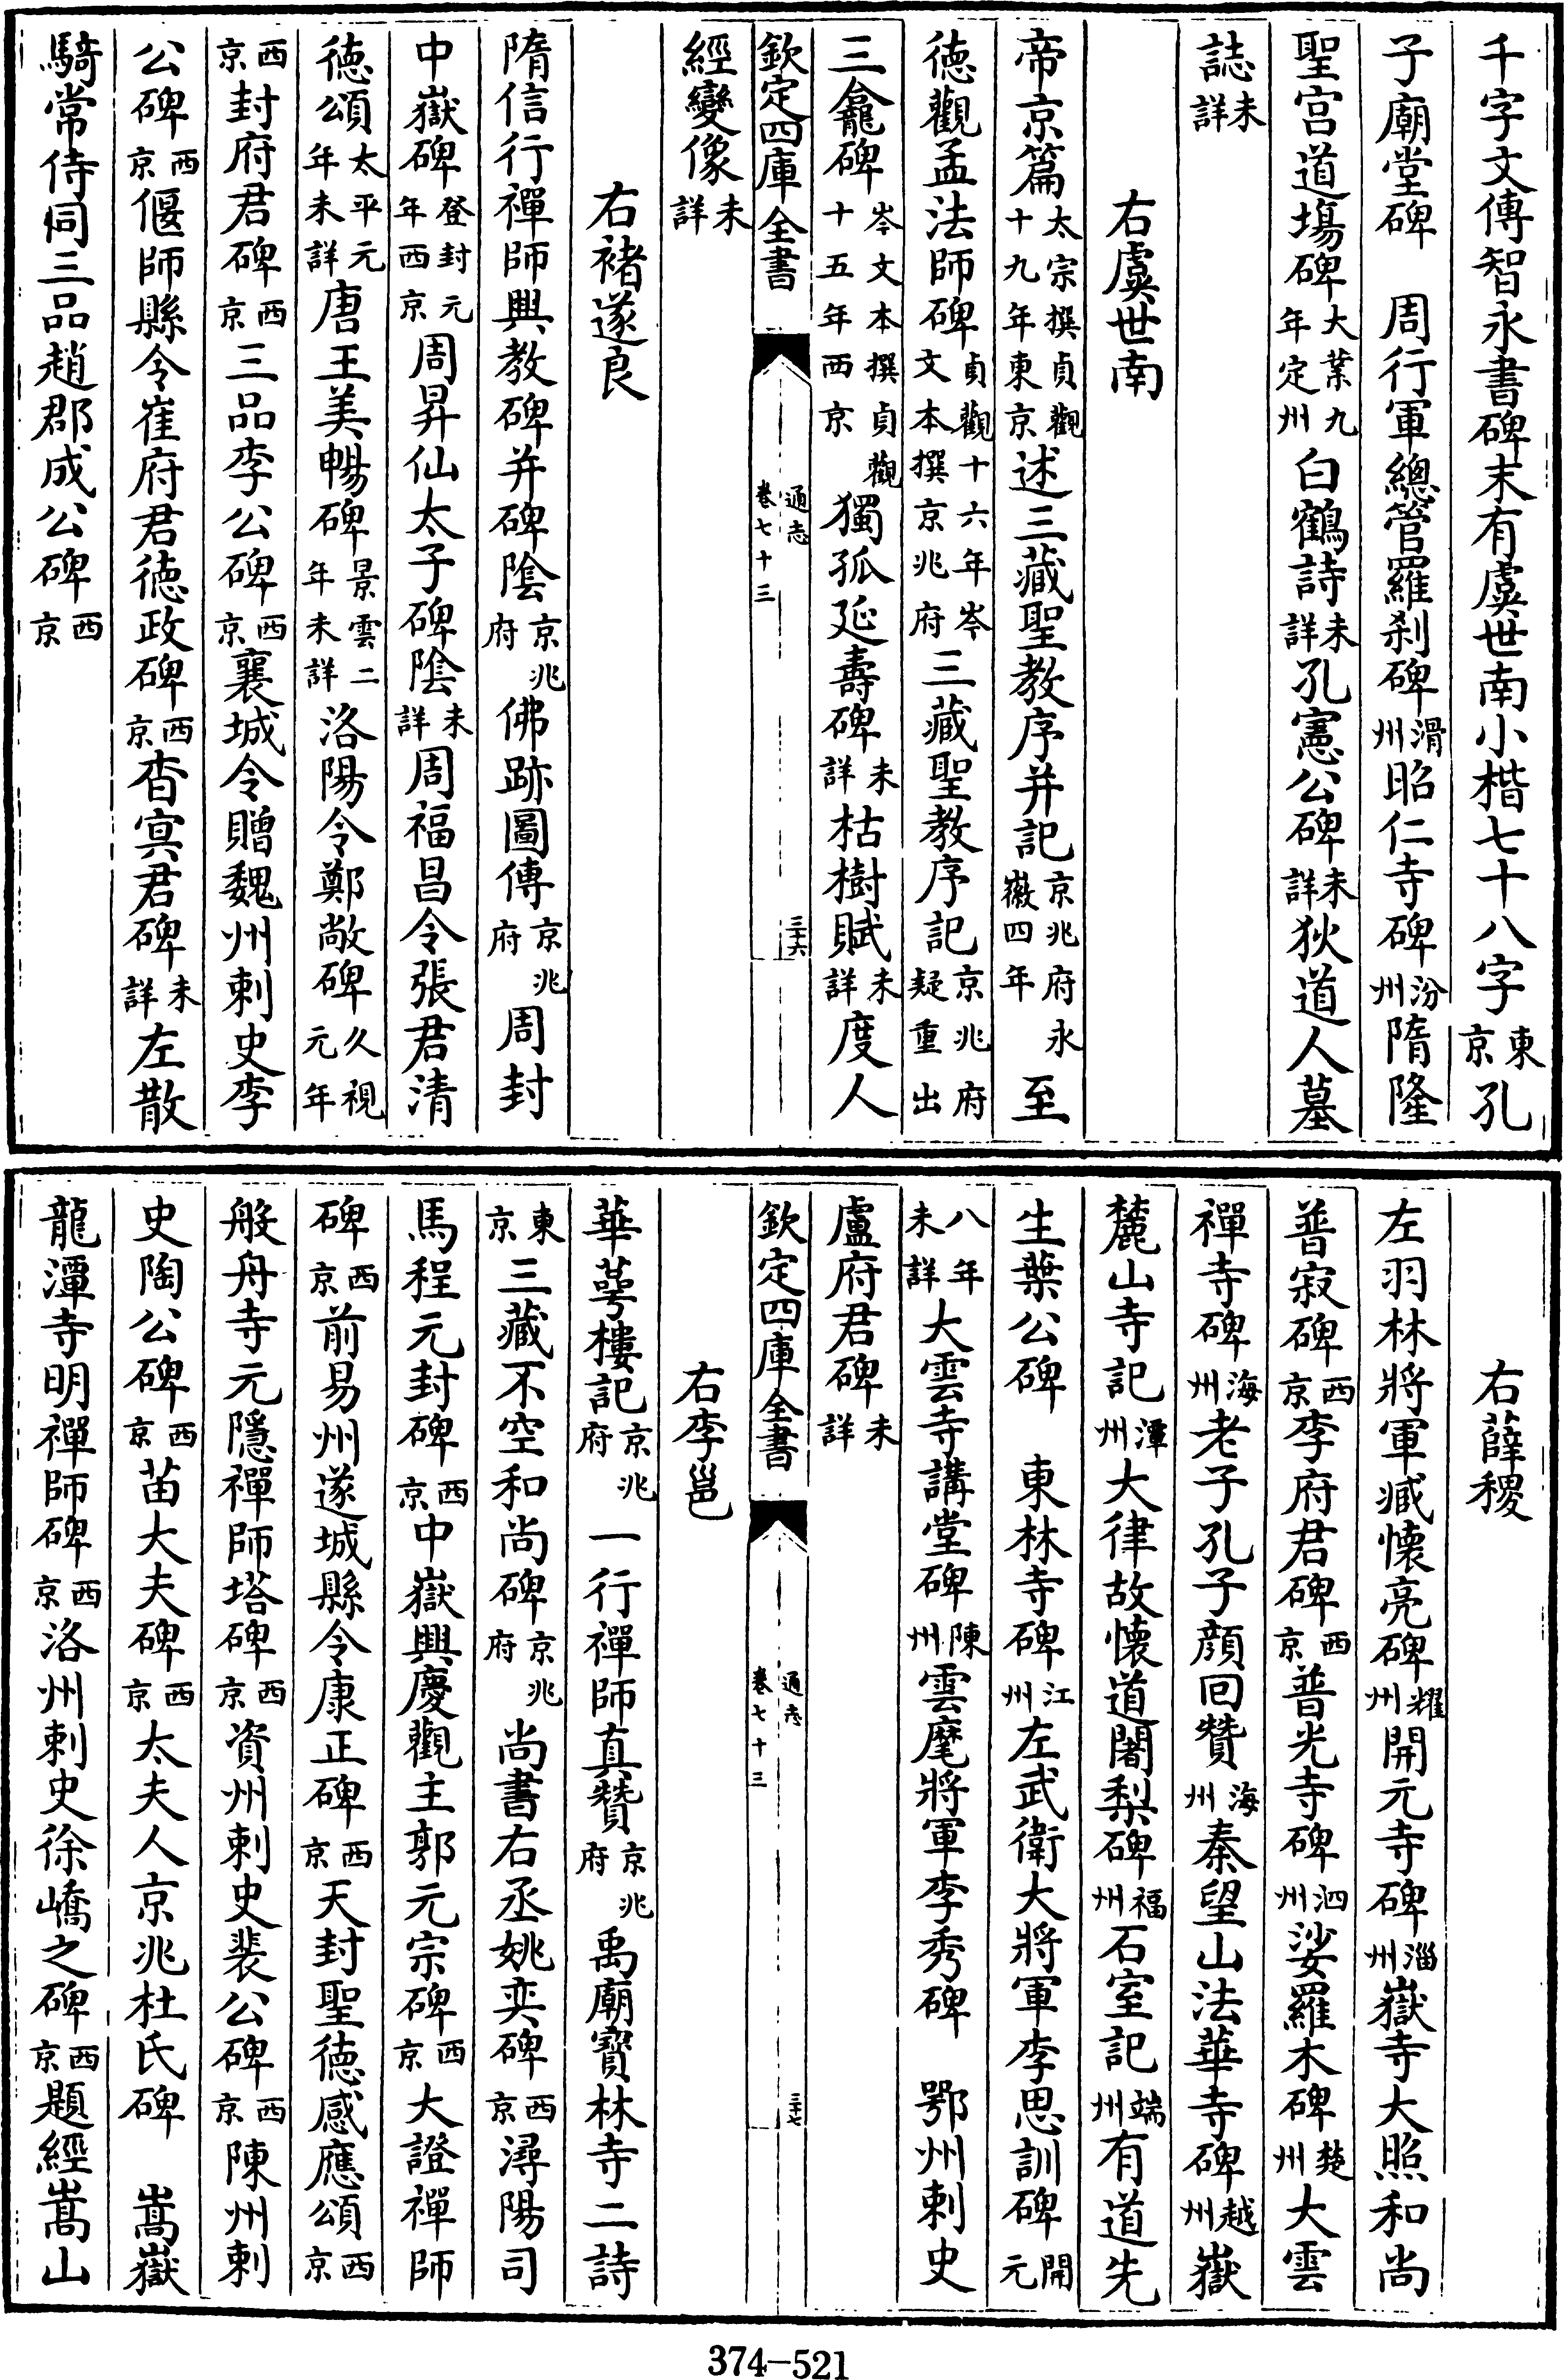 千字文傳智永書碑末有虞世南小楷七十八字東京孔
子廟堂碑　周行軍總管羅刹碑滑州昭仁寺碑汾州隋隆
聖宫道塲碑大業九年定州白鶴詩未詳孔憲公碑未詳狄道人墓
誌未詳
右虞世南
帝京篇太宗撰貞觀十九年東京述三藏聖教序并記京兆府永徽四年至
徳觀孟法師碑貞觀十六年岑文本撰京兆府三藏聖教序記京兆府疑重出
三龕碑岑文本撰貞觀十五年西京獨孤延壽碑未詳枯樹賦未詳度人
欽定四庫全書
通志
卷七十三
三十六
經變像未詳
右褚遂良
隋信行禪師興教碑并碑陰京兆府佛跡圖傳京兆府周封
中嶽碑登封元年西京周昇仙太子碑陰未詳周福昌令張君清
徳頌太平元年未詳唐王美暢碑景雲二年未詳洛陽令鄭敞碑久視元年
西京封府君碑西京三品李公碑西京襄城令贈魏州刺史李
公碑西京偃師縣令崔府君徳政碑西京杳㝠君碑未詳左散
騎常侍同三品趙郡成公碑西京
右薛稷
左羽林將軍臧懐亮碑耀州開元寺碑淄州嶽寺大照和尚
普寂碑西京李府君碑西京普光寺碑泗州娑羅木碑楚州大雲
禪寺碑海州老子孔子顔回贊海州秦望山法華寺碑越州嶽
麓山寺記潭州大律故懐道闍梨碑福州石室記端州有道先
生葉公碑　東林寺碑江州左武衛大將軍李思訓碑開元
八年未詳大雲寺講堂碑陳州雲麾將軍李秀碑　鄂州刺史
盧府君碑未詳
欽定四庫全書
通志
卷七十三
三十七
右李邕
華萼樓記京兆府一行禪師真贊京兆府禹廟寳林寺二詩
東京三藏不空和尚碑京兆府尚書右丞姚奕碑西京潯陽司
馬程元封碑西京中嶽興慶觀主郭元宗碑西京大證禪師
碑西京前易州遂城縣令康正碑西京天封聖徳感應頌西京
般舟寺元隱禪師塔碑西京資州刺史裴公碑西京陳州刺
史陶公碑西京苗大夫碑西京太夫人京兆杜氏碑　嵩嶽
龍潭寺明禪師碑西京洛州刺史徐嶠之碑西京題經嵩山
374-521